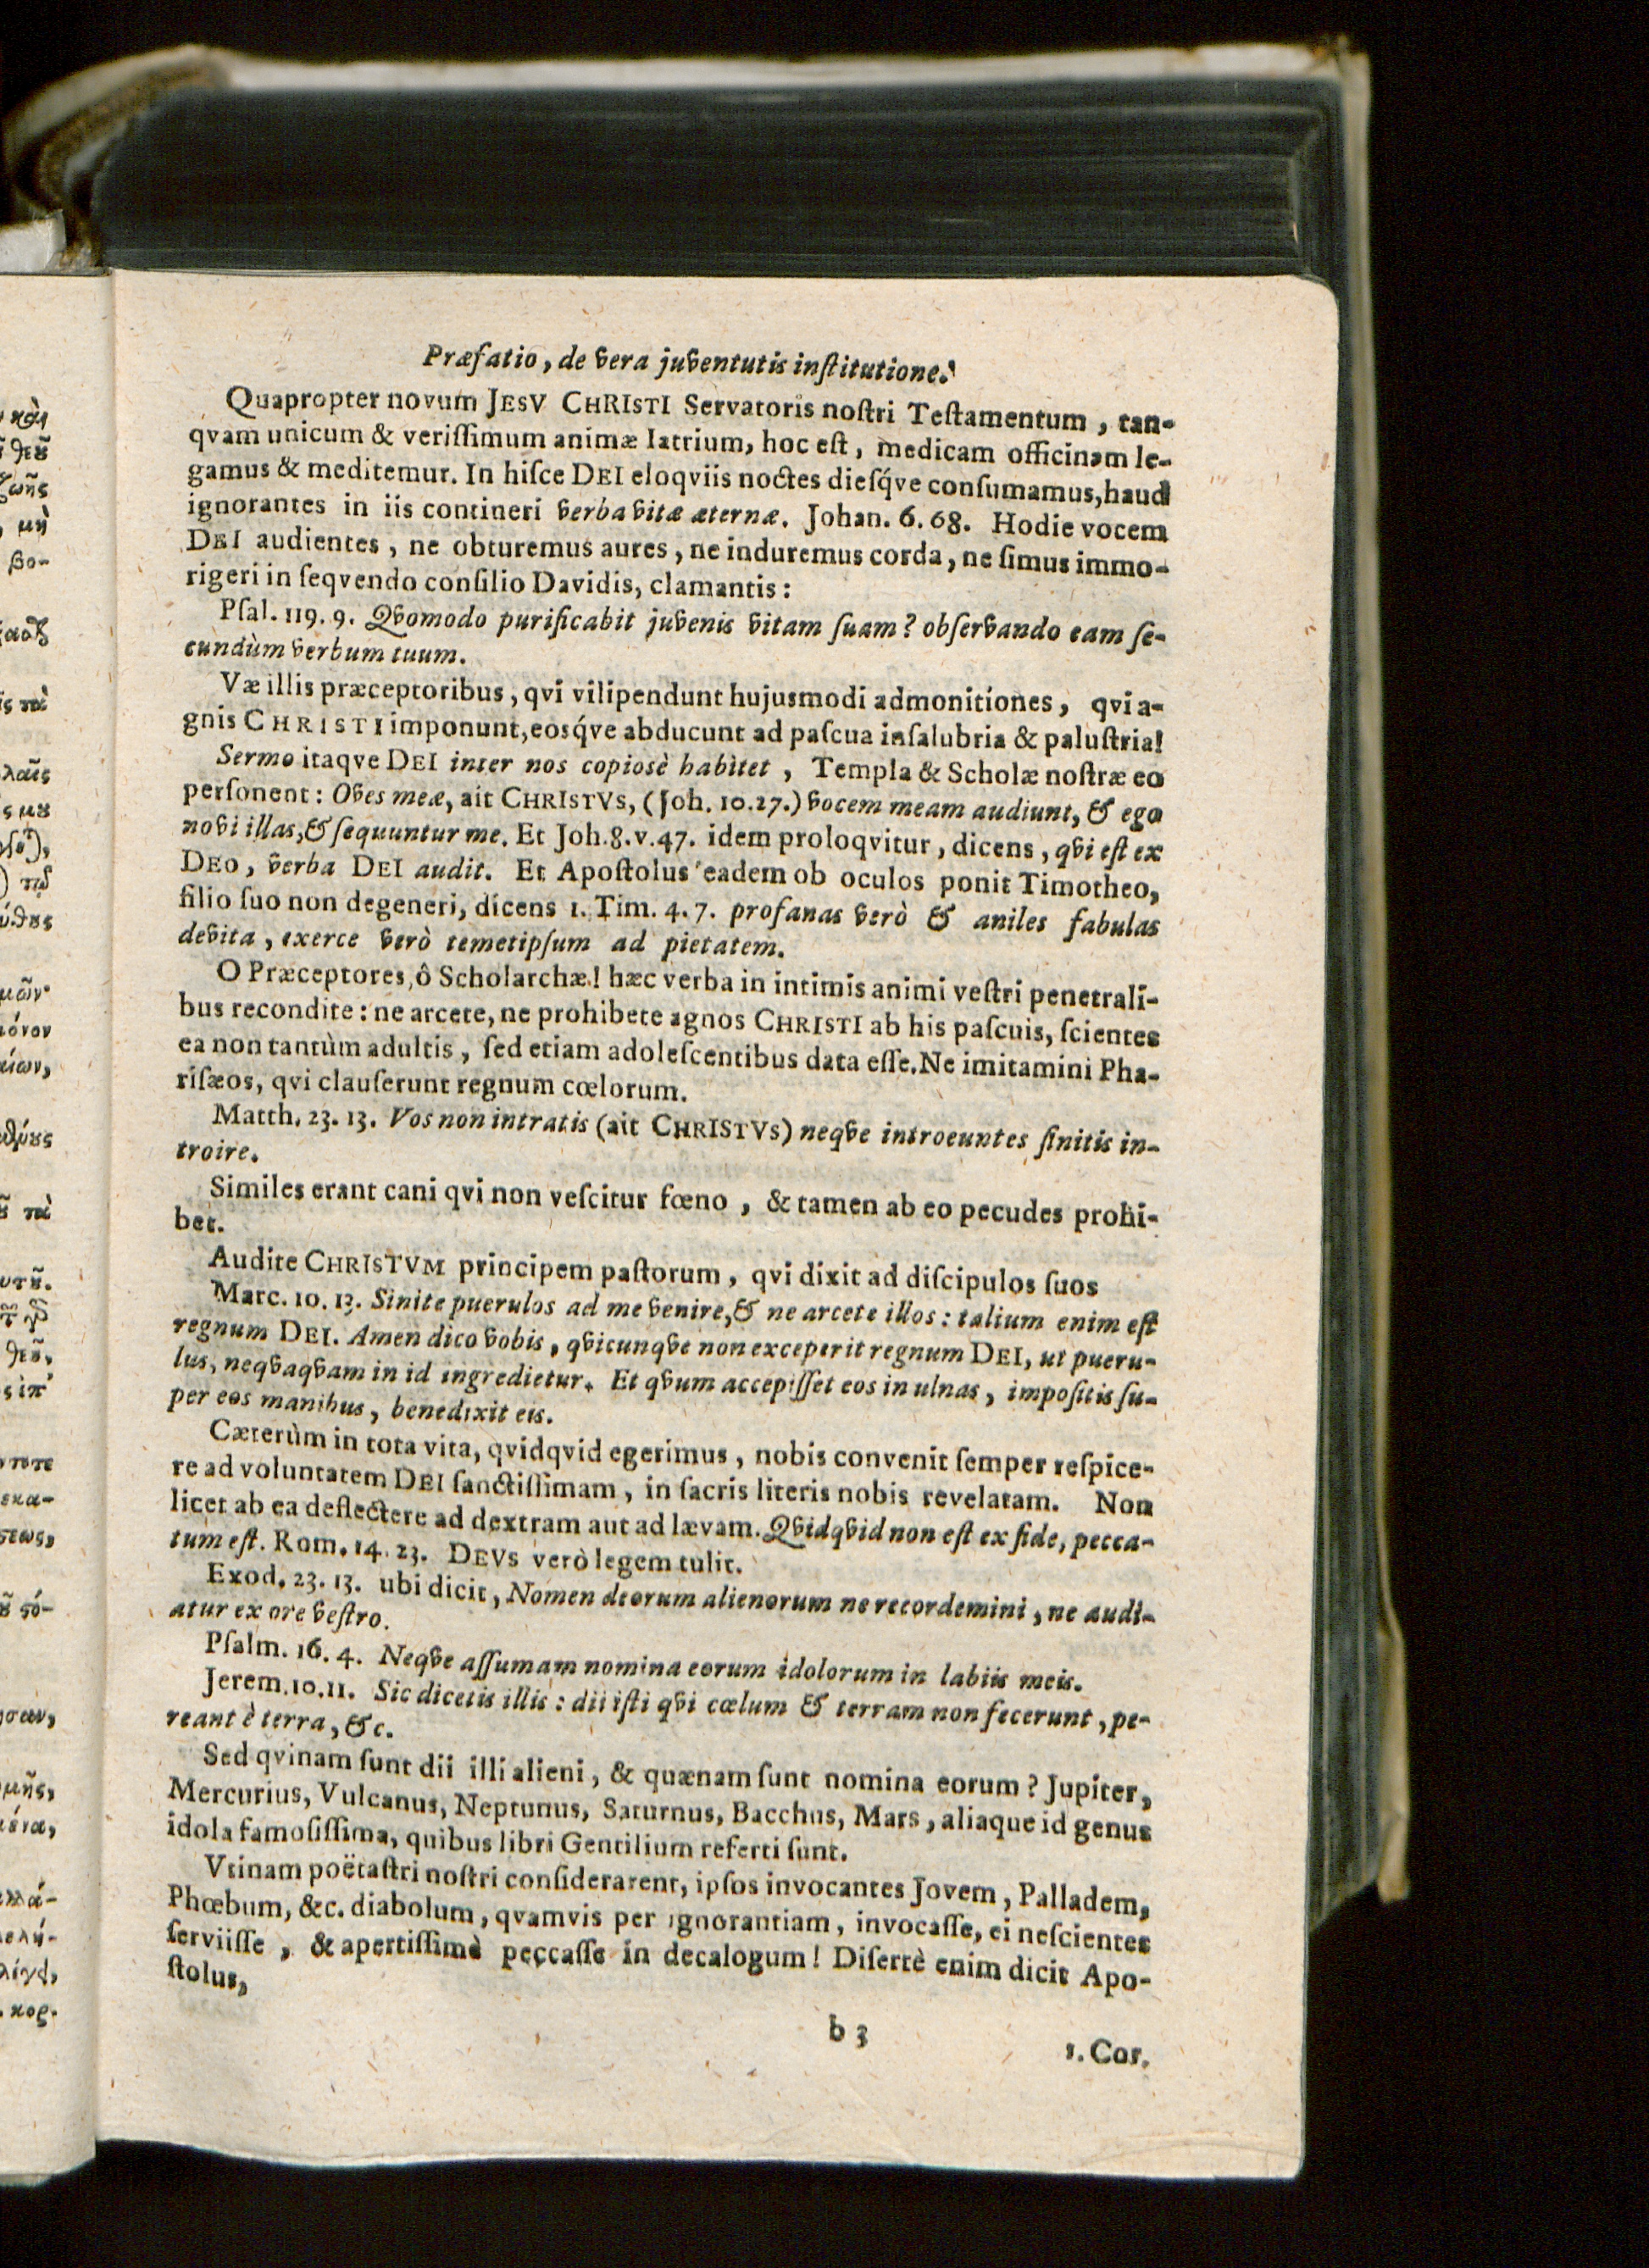 Præfatio, de vera juventutis inſtitutione.
Quapropter novum JESV CHRISTI Servatoris noſtri Teſtamentum, tan-
qvam unicum & veriſſimum animæ Iatrium, hoc eſt, medicam officinam le-
gamus & meditemur. In hiſce DEI eloqviis noctes dieſq́ve conſumamus, haud
ignorantes in iis contineri verba vitæ æternæ. Johan. 6. 68. Hodie vocem
DEI audientes, ne obturemus aures, ne induremus corda, ne ſimus immo-
rigeri in ſeqvendo conſilio Davidis, clamantis:
Pſal. 119. 9. Qvomodo purificabit juvenis vitam ſuam? obſervando eam ſe-
cundùm verbum tuum.
Væ illis præceptoribus, qvi vilipendunt hujusmodi admonitiones, qvi a-
gnis CHRISTI imponunt, eosq́ve abducunt ad paſcua inſalubria & paluſtria!
Sermo itaqve DEI inter nos copiosè habitet, Templa & Scholæ noſtræ eo
perſonent: Oves meæ, ait CHRISTVS, (Joh. 10. 27.) vocem meam audiunt, & ego
novi illas, & ſequuntur me. Et Joh. 8. v. 47. idem proloqvitur, dicens, qvi eſt ex
DEO, verba DEI audit. Et Apoſtolus eadem ob oculos ponit Timotheo,
filio ſuo non degeneri, dicens 1. Tim. 4. 7. profanas verò & aniles fabulas
devita, exerce verò temetipſum ad pietatem.
O Præceptores, ô Scholarchæ! hæc verba in intimis animi veſtri penetrali-
bus recondite: ne arcete, ne prohibete agnos CHRISTI ab his paſcuis, ſcientes
ea non tantùm adultis, ſed etiam adoleſcentibus data eſſe. Ne imitamini Pha-
riſæos, qvi clauſerunt regnum cœlorum.
Matth. 23. 13. Vos non intratis (ait CHRISTVS) neqve introeuntes ſinitis in-
troire.
Similes erant cani qvi non veſcitur fœno, & tamen ab eo pecudes prohi-
bet.
Audite CHRISTVM principem paſtorum, qvi dixit ad diſcipulos ſuos
Marc. 10. 13. Sinite puerulos ad me venire, & ne arcete illos: talium enim eſt
regnum DEI. Amen dico vobis, qvicunqve non exceperit regnum DEI, ut pueru-
lus, neqvaqvam in id ingredietur. Et qvum accepiſſet eos in ulnas, impoſitis ſu-
per eos manibus, benedixit eis.
Cæterùm in tota vita, qvidqvid egerimus, nobis convenit ſemper reſpice-
re ad voluntatem DEI ſanctiſſimam, in ſacris literis nobis revelatam. Non
licet ab ea deflectere ad dextram aut ad lævam. Qvidqvid non eſt ex fide, pecca-
tum eſt. Rom. 14. 23. DEVS verò legem tulit.
Exod. 23. 13. ubi dicit, Nomen deorum alienorum ne recordemini, ne audi-
atur ex ore veſtro.
Pſalm. 16. 4. Neqve aſſumam nomina eorum idolorum in labiis meis.
Jerem. 10. 11. Sic dicetis illis: dii iſti qvi cœlum & terram non fecerunt, pe-
reant è terra, &c.
Sed qvinam ſunt dii illi alieni, & quænam ſunt nomina eorum? Jupiter,
Mercurius, Vulcanus, Neptunus, Saturnus, Bacchus, Mars, aliaque id genus
idola famoſiſſima, quibus libri Gentilium referti ſunt.
Vtinam poëtaſtri noſtri conſiderarent, ipſos invocantes Jovem, Palladem,
Phœbum, &c. diabolum, qvamvis per ignorantiam, invocaſſe, ei neſcientes
ſerviiſſe, & apertiſſimè peccaſſe in decalogum! Diſertè enim dicit Apo-
ſtolus,
b 3
1. Cor.